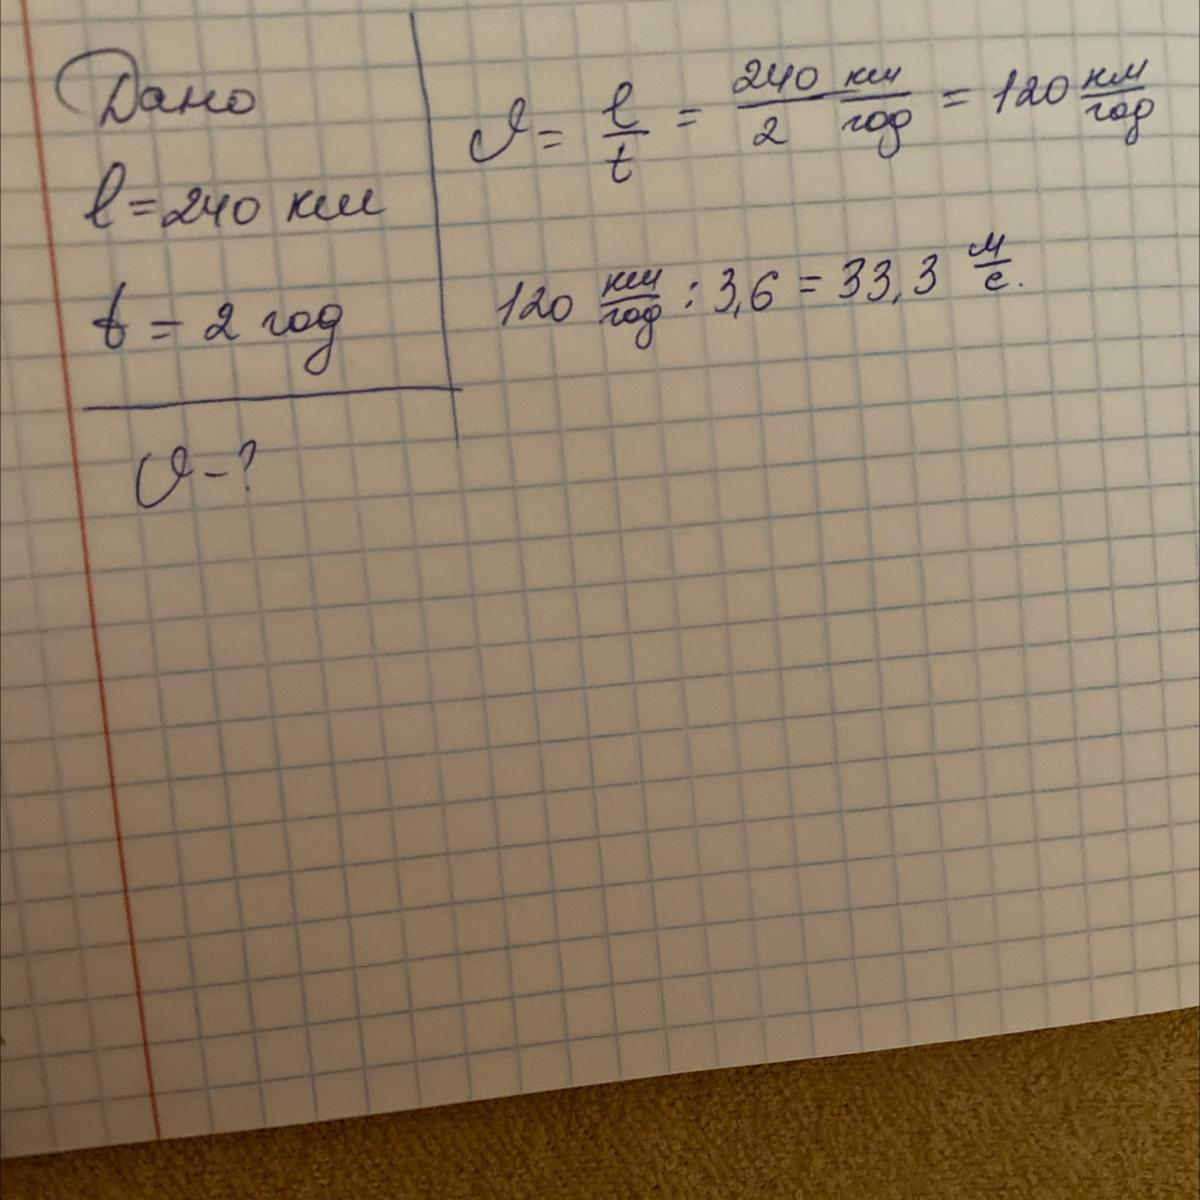 Дано
l = 240 км
t = 2 год
v - ?
v = l/t = 240/2 км/год = 120 км/год
120 км/год : 3,6 = 33,3 м/с.